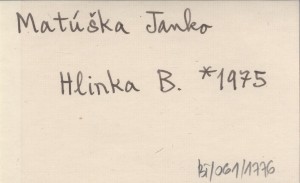 Matúška Janko
Hlinka B. *1975
/061/1776